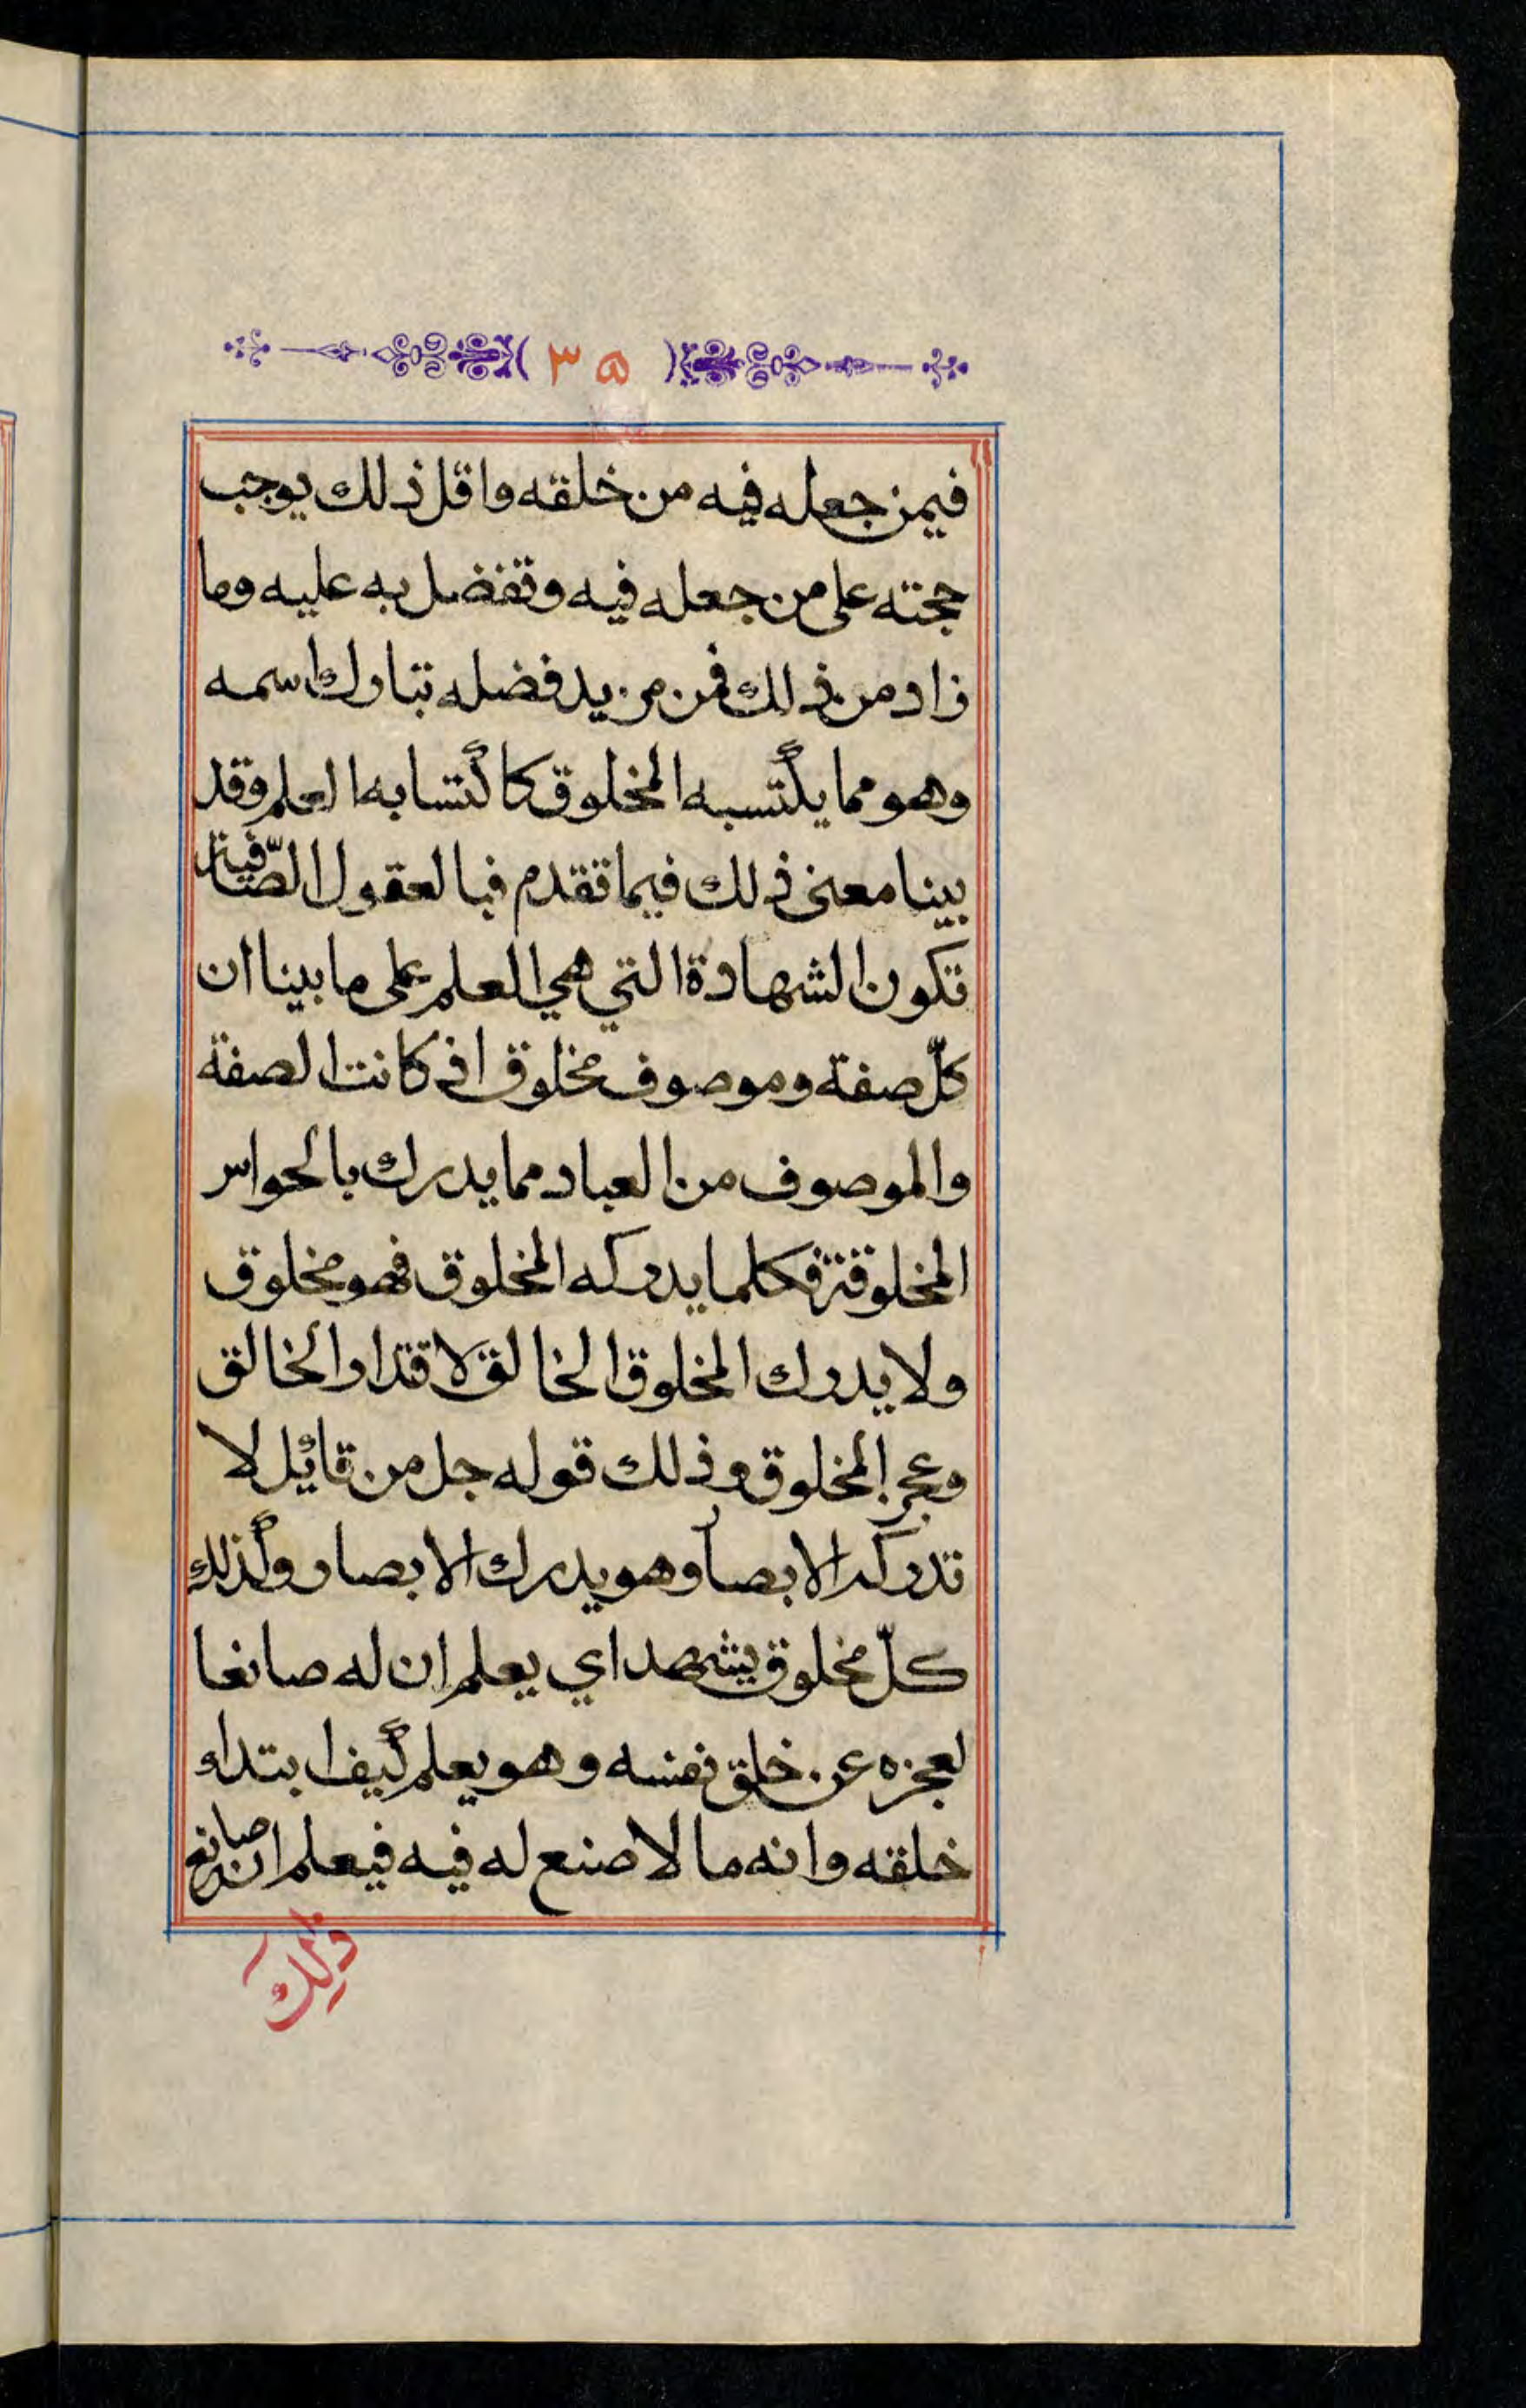 ٣٥
فيمن جعله فيه من خلقه واقل ذلك يوجب
حجته على من جعله فيه وتفضل به عليه وما
زاد من ذلك فمن مزيد فضله تبارك اسمه
وهو مما يكتسبه المخلوق كاكتسابه العلم وقد
بينا معنى ذلك فيما تقدم فبالعقول الصّافية
تكون الشهادة التي هي العلم على ما بينا ان
كلّ صفة وموصوف مخلوق اذ كانت الصفة
والموصوف من العباد مما يدرك بالحواس
المخلوقة فكلما يدركه المخلوق فهو مخلوق
ولا يدرك المخلوق الخالق لاقتدار الخالق
وعجز المخلوق وذلك قوله جل من قائل لا
تدركه الابصار وهو يدرك الابصار وكذلك
كلّ مخلوق يشهد اي يعلم ان له صانعا
لعجزه عن خلق نفسه وهو يعلم كيف ابتداء
خلقه وانه ما لا صنع له فيه فيعلم ان صانع
ذلك